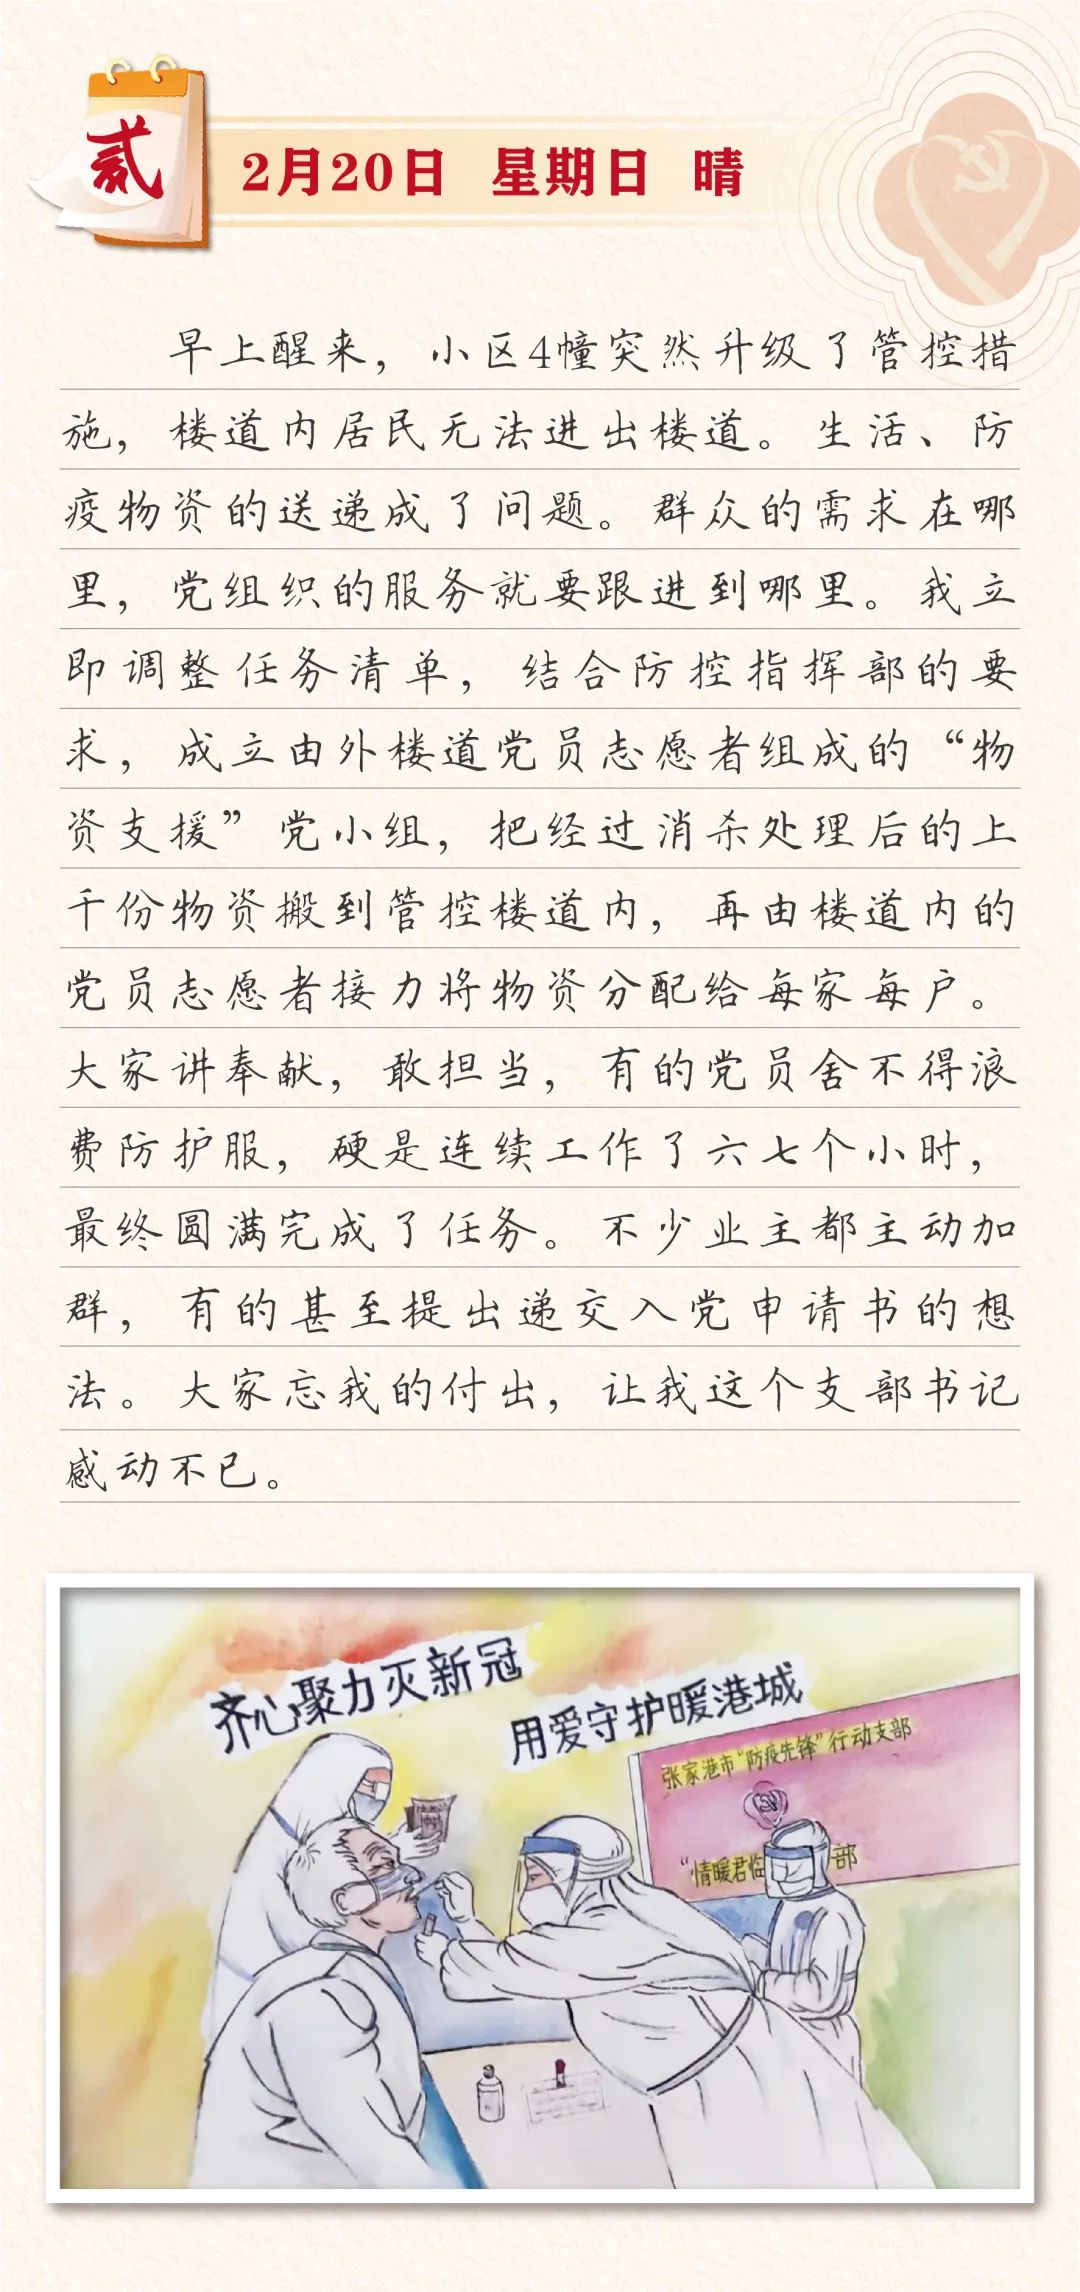 贰
2月20日 星期日 晴
早上醒来，小区4幢突然升级了管控措
施，楼道内居民无法进出楼道。生活、防
疫物资的送递成了问题。群众的需求在哪
里，党组织的服务就要跟进到哪里。我立
即调整任务清单，结合防控指挥部的要
求，成立由外楼道党员志愿者组成的“物
资支援”党小组，把经过消杀处理后的上
千份物资搬到管控楼道内，再由楼道内的
党员志愿者接力将物资分配给每家每户。
大家讲奉献，敢担当，有的党员舍不得浪
费防护服，硬是连续工作了六七个小时，
最终圆满完成了任务。不少业主都主动加
群，有的甚至提出递交入党申请书的想
法。大家忘我的付出，让我这个支部书记
感动不已。
齐心聚力灭新冠
用爱守护暖港城
张家港市“防疫先锋”行动支部
“情暖君临 部